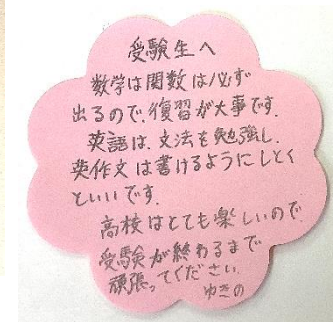 受験生へ
数学は関数は必ず
出るので、復習が大事です。
英語は、文法を勉強し、
英作文は書けるようにしとく
といいです。
高校はとても楽しいので
受験が終わるまで
頑張ってください。
ゆきの